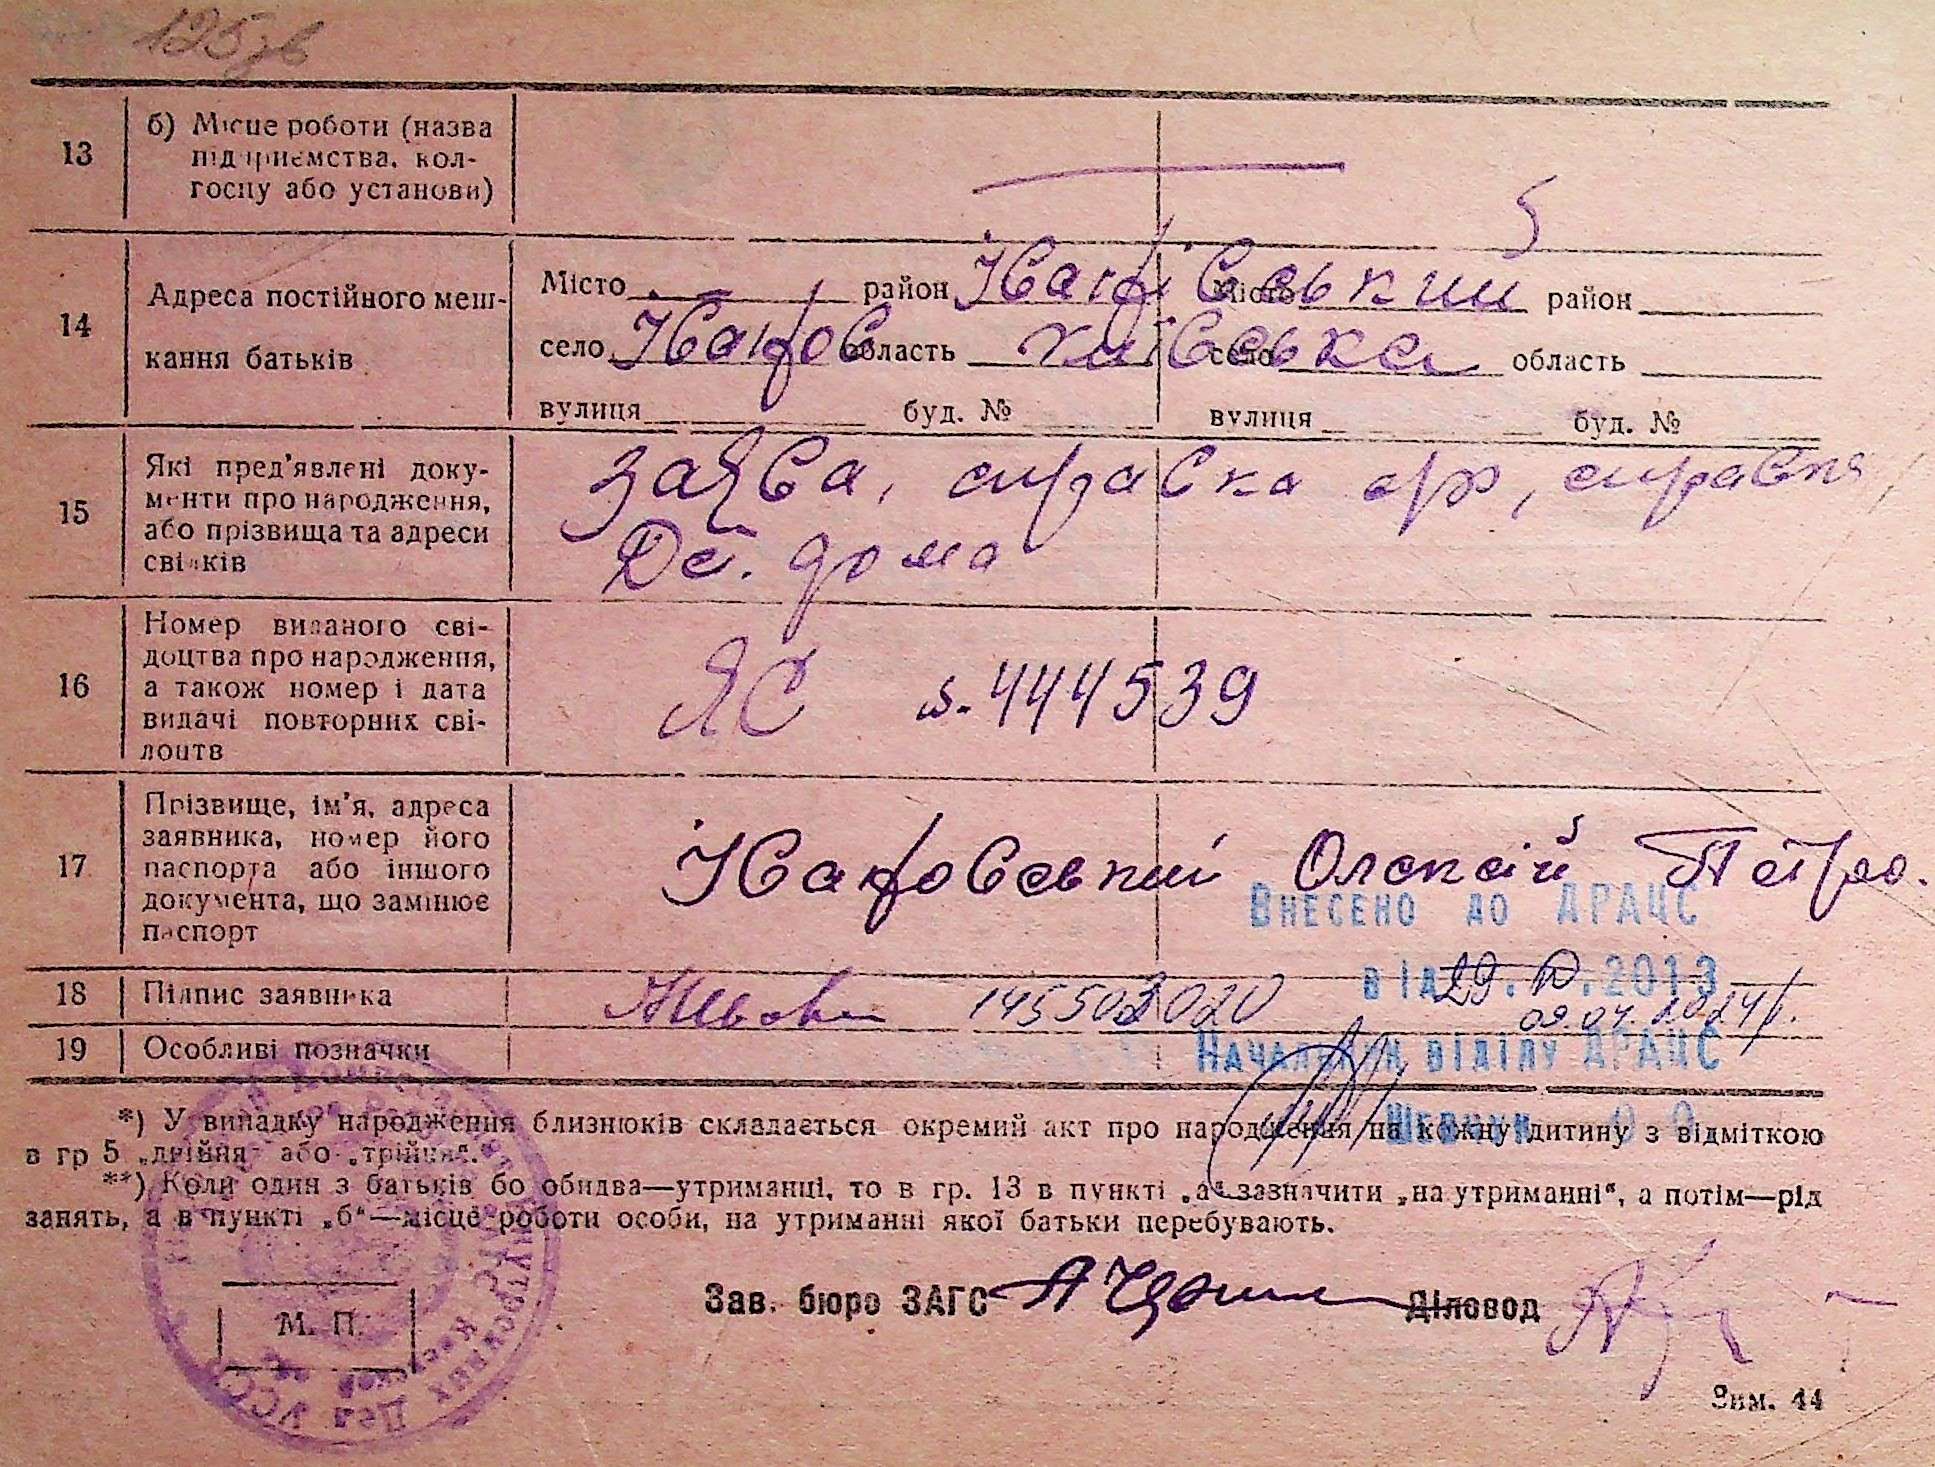 125 зв
13 б) Місце роботи (назва
підприємства, кол-
госпу або установи)
14 Адреса постійного меш-
кання батьків
Місто район Іванківський Місто район
село Іванков область Київська село область
вулиця буд. № вулиця буд. №
15 Які пред'явлені доку-
менти про народження,
або прізвища та адреси
свідків
заява, справка арх, справка
Де. дома
16 Номер виданого сві-
доцтва про народження,
а також номер і дата
видачі повторних сві-
доцтв
ЯС № 444539
17 Прізвище, ім'я, адреса
заявника, номер його
паспорта або іншого
документа, що замінює
паспорт
Олексій Петро.
Внесено до ДРАЦС
від 29.10.2013
18 Підпис заявника 145503020 09.04.2024р.
19 Особливі позначки
Начальник відділу ДРАЦС
*) У випадку народження близнюків складається окремий акт про народження на кожну дитину з відміткою
в гр 5 „двійня" або „трійня".
**) Коли один з батьків бо обидва—утриманці, то в гр. 13 в пункті „а" зазначити „на утриманні", а потім—рід
занять, а в пункті „б"—місце роботи особи, на утриманні якої батьки перебувають.
М. П.
Зав. бюро ЗАГС Діловод
Зим. 44